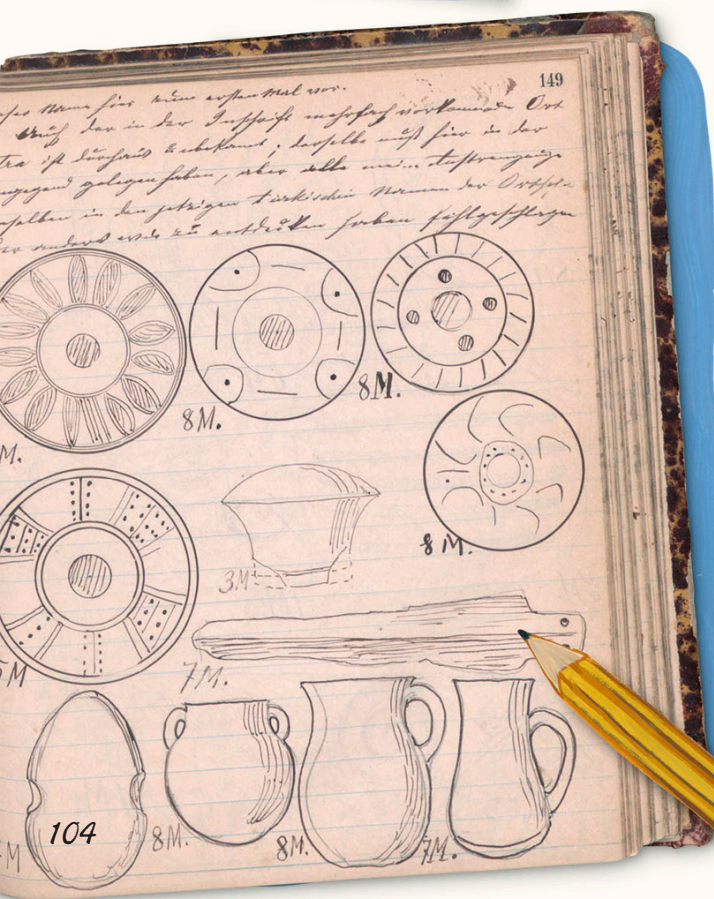 149
Name hier zum ersten Mal vor.
Auch der in der Inschrift mehrfach vorkommende Ort
ist durchaus unbekannt; derselbe muß hier in der
gelegen haben, aber alle meine Anstrengungen
in den jetzigen türkischen Namen der
anders wie zu entdecken haben fehlgeschlagen
8M.
8M.
M.
8M.
3M
5M
7M.
104
8M.
8M.
7M.
M